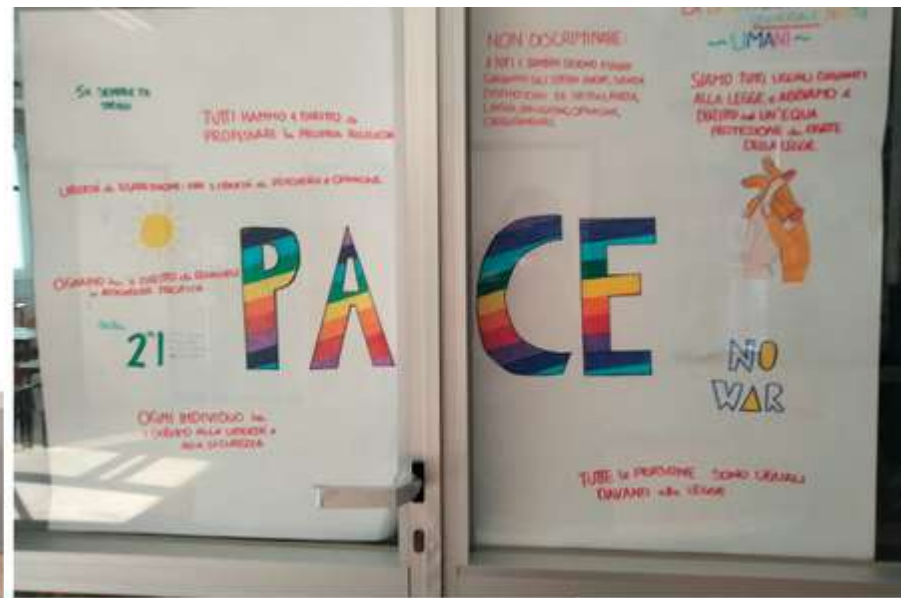 SII SEMPRE TE
STESSO
TUTTI HANNO il DIRITTO di
PROFESSARE la PROPRIA RELIGIONE
LIBERTÀ di ESPRESSIONE: LIBERTÀ di PENSIERO e OPINIONE
OGNUNO ha il DIRITTO di
PACIFICA
2ªI
OGNI INDIVIDUO ha
il DIRITTO ALLA LIBERTÀ e
ALLA SICUREZZA
PACE
NON DISCRIMINARE:
DISTINZIONI DI
UMANI
SIAMO TUTTI UGUALI DAVANTI
ALLA LEGGE e ABBIAMO il
DIRITTO ad UN'EQUA
PROTEZIONE da PARTE
DELLA LEGGE
NO
WAR
TUTTE le PERSONE SONO UGUALI
DAVANTI alla LEGGE